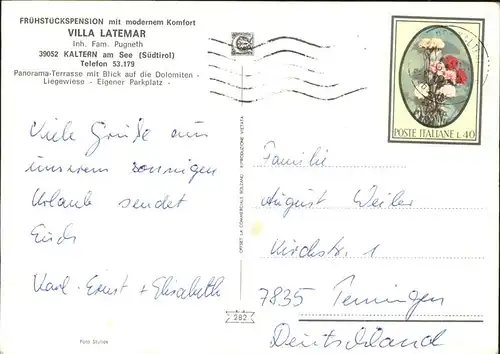 FRÜHSTÜCKSPENSION mit modernem Komfort
VILLA LATEMAR
Inh. Fam. Pugneth
39052 KALTERN am See (Südtirol)
Telefon 53.179
Panorama-Terrasse mit Blick auf die Dolomiten -
Liegewiese - Eigener Parkplatz -
Viele Grüße aus
unserem sonnigen
Urlaub sendet
Euch
Karl-Ernst + Elisabeth
Foto
OFFSET LA COMMERCIALE BOLZANO RIPRODUZIONE VIETATA
282
POSTE ITALIANE L.40
Familie
August Weiler
Kirchstr. 1
7835 Teningen
Deutschland